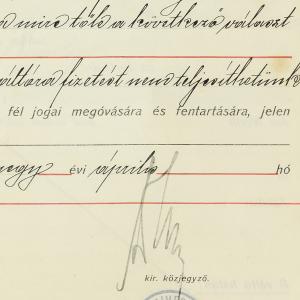 a mire tőle a következő választ
váltóra fizetést nem teljesíthetünk
fél jogai megóvására és fentartására, jelen
négy évi április hó
kir. közjegyző.